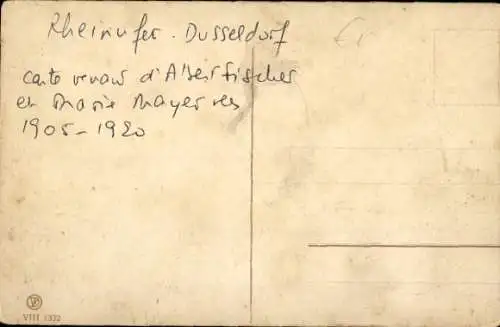 Rheinufer - Dusseldorf
carte venant d'Albert Fischer
et Marie Mayer vers
1905-1920
VIII 1332